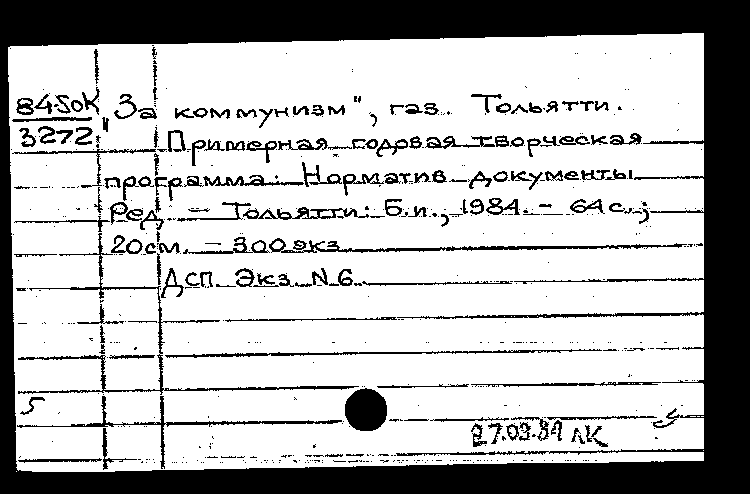 84-5ок
3272
"За коммунизм", газ. Тольятти.
Примерная годовая творческая
программа: Норматив. документы
Ред. - Тольятти: Б.и., 1984. - 64 с.;
20 см. - 300 экз.
Дсп. Экз. N 6.
5
27.03.84 ЛК